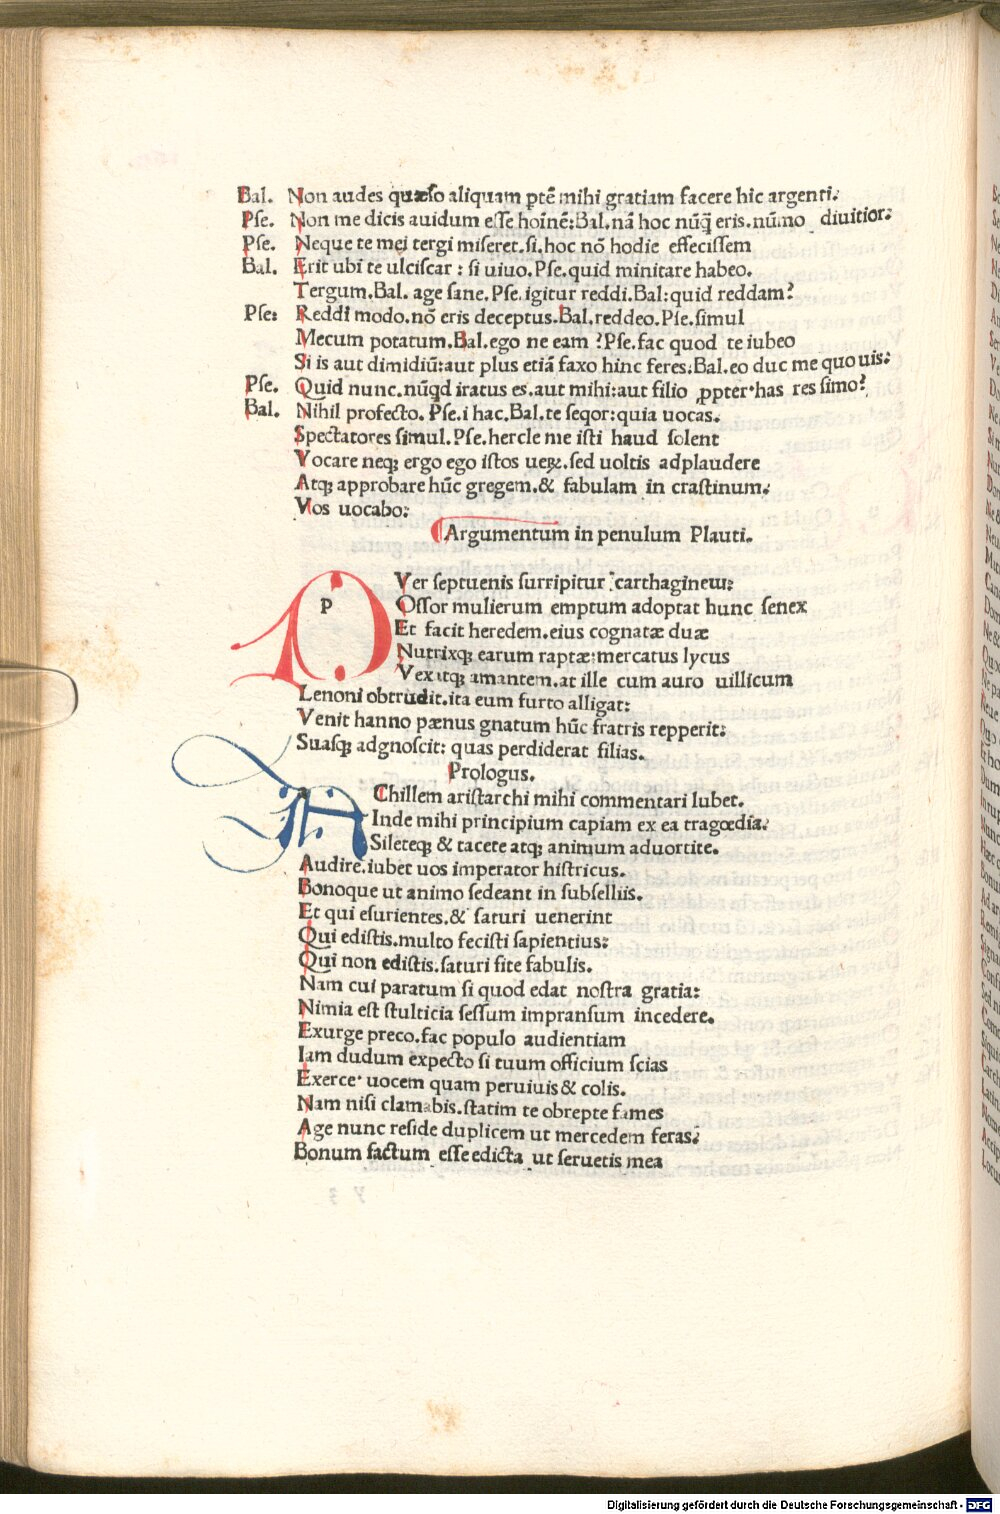 Bal. Non audes quæso aliquam ptẽ mihi gratiam facere hic argenti:
Pse. Non me dicis auidum esse hoĩnẽ:Bal.nã hoc nũq̃ eris.nũmo diuitior:
Pse. Neque te mei tergi miseret.si.hoc nõ hodie effecissem
Bal. Erit ubi te ulciscar : si uiuo.Pse.quid minitare habeo.
Tergum.Bal. age sane.Pse.igitur reddi.Bal:quid reddam?
Pse: Reddi modo.nõ eris deceptus.Bal.reddeo.Pse.simul
Mecum potatum.Bal.ego ne eam ?Pse.fac quod te iubeo
Si is aut dimidiũ:aut plus etiã faxo hinc feres:Bal.eo duc me quo uis:
Pse. Quid nunc.nũqd iratus es.aut mihi:aut filio ꝓpter has res simo?
Bal. Nihil profecto. Pse.i hac.Bal.te seqor:quia uocas.
Spectatores simul.Pse.hercle me isti haud solent
Vocare neqꝫ ergo ego istos ueꝝ.sed uoltis adplaudere
Atqꝫ approbare hũc gregem.& fabulam in crastinum:
Vos uocabo:
Argumentum in penulum Plauti.
P Ver septuenis surripitur carthagineus:
Ossor mulierum emptum adoptat hunc senex
Et facit heredem.eius cognatæ duæ
Nutrixqꝫ earum raptæ:mercatus lycus
Vexitqꝫ amantem.at ille cum auro uillicum
Lenoni obtrudit.ita eum furto alligat:
Venit hanno pænus gnatum hũc fratris repperit:
Suasqꝫ adgnoscit: quas perdiderat filias.
Prologus.
AChillem aristarchi mihi commentari lubet.
Inde mihi principium capiam ex ea tragœdia:
Sileteqꝫ & tacete atqꝫ animum aduortite.
Audire.iubet uos imperator histricus.
Bonoque ut animo sedeant in subselliis.
Et qui esurientes.& saturi uenerint
Qui edistis.multo fecisti sapientius:
Qui non edistis.saturi site fabulis.
Nam cui paratum si quod edat nostra gratia:
Nimia est stulticia sessum impransum incedere.
Exurge preco.fac populo audientiam
Iam dudum expecto si tuum officium scias
Exerce uocem quam peruiuis & colis.
Nam nisi clamabis.statim te obrepte fames
Age nunc reside duplicem ut mercedem feras:
Bonum factum esse edicta ut seruetis mea
Digitalisierung gefördert durch die Deutsche Forschungsgemeinschaft - DFG